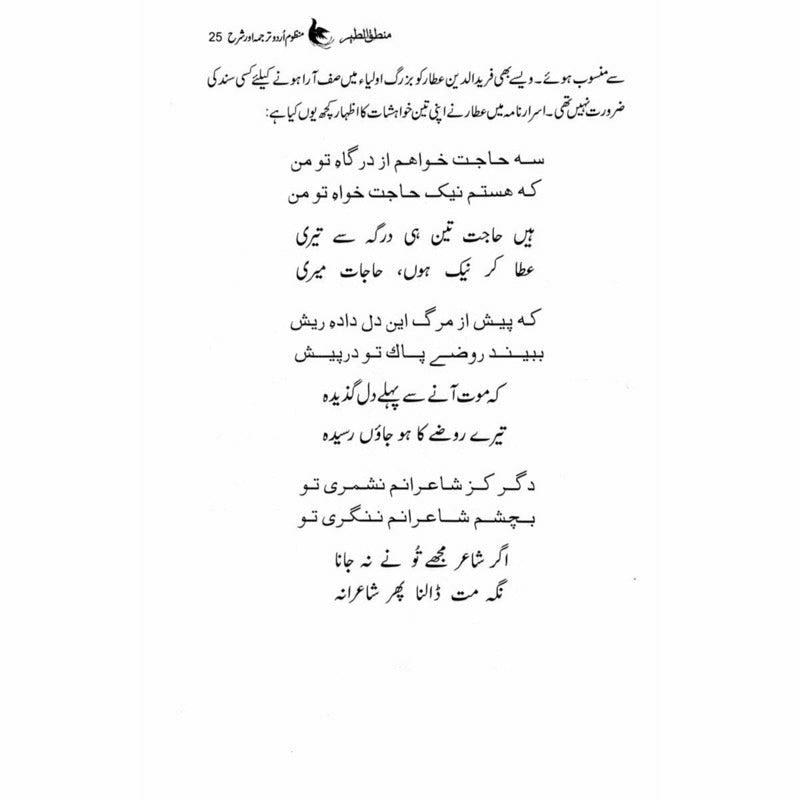 منطق الطیر منظوم اُردو ترجمہ اور شرح 25
سے منسوب ہوئے۔ ویسے بھی فرید الدین عطار کو بزرگ اولیاء میں صف آرا ہونے کیلئے کسی سند کی
ضرورت نہیں تھی۔ اسرار نامہ میں عطار نے اپنی تین خواہشات کا اظہار کچھ یوں کیا ہے:
سہ حاجت خواہم از درگاہِ تو من
کہ ہستم نیک حاجت خواہِ تو من
ہیں حاجت تین ہی درگہ سے تیری
عطا کر نیک ہوں، حاجات میری
کہ پیش از مرگ این دل دادہ ریش
ببیند روضے پاك تو درپیش
کہ موت آنے سے پہلے دل گذیدہ
تیرے روضے کا ہو جاؤں رسیدہ
دگر کز شاعرانم نشمری تو
بچشم شاعرانم ننگری تو
اگر شاعر مجھے تُو نے نہ جانا
نگہ مت ڈالنا پھر شاعرانہ